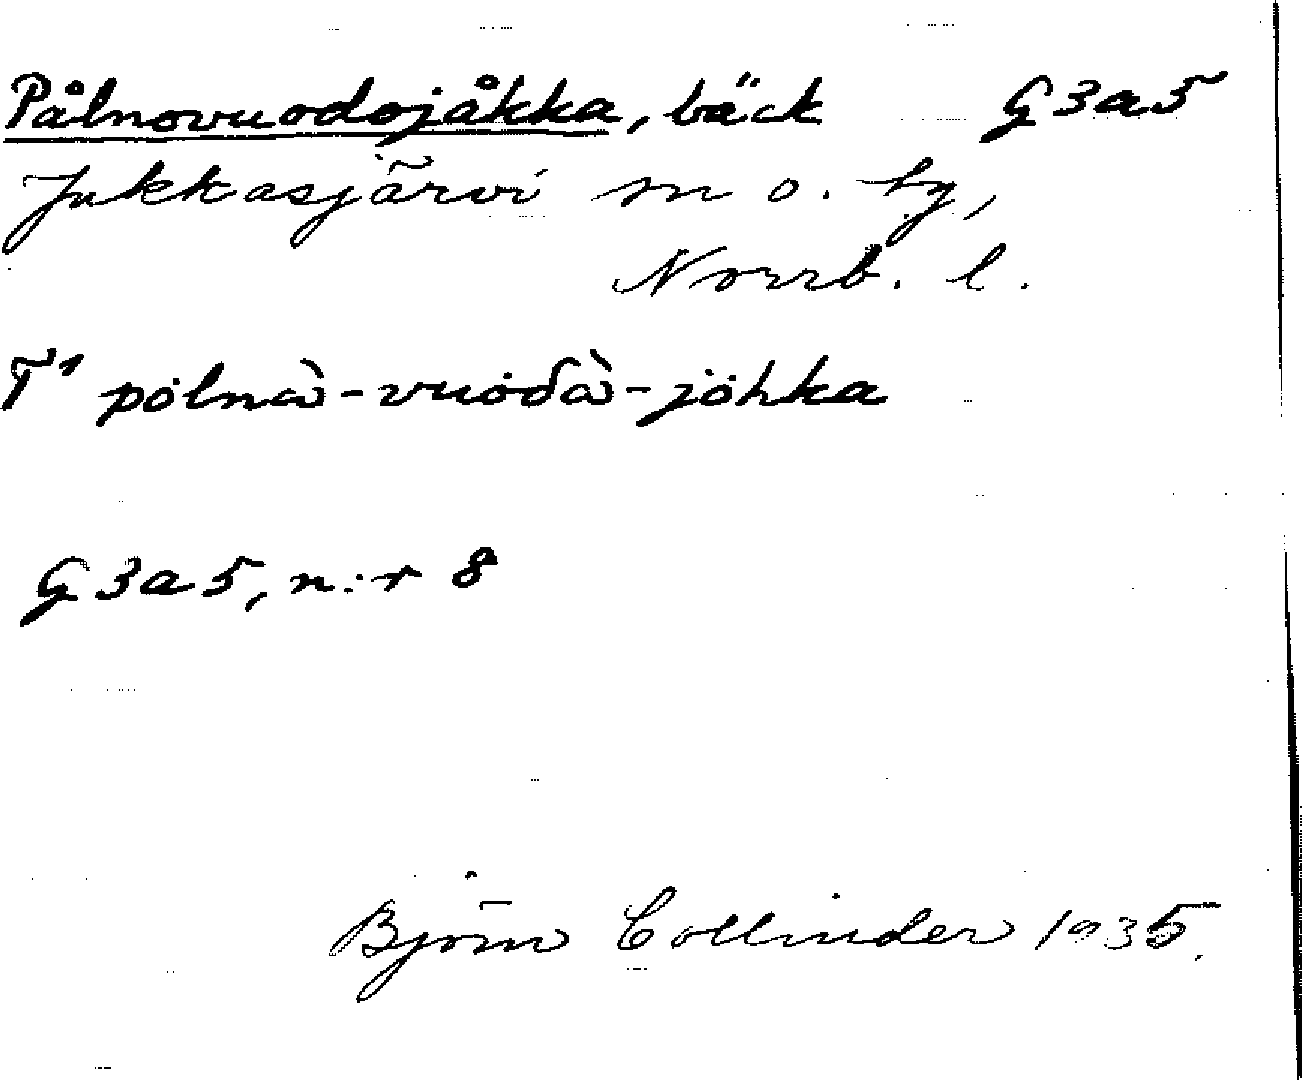 Pålnovuodojåkka, bäck G3a5
Jukkasjärvi sn o. tg,
Norrb. l.
T¹ pȯlnà-vuȯđà-jȯhka
G3a5, n:r 8
Björn Collinder 1935.